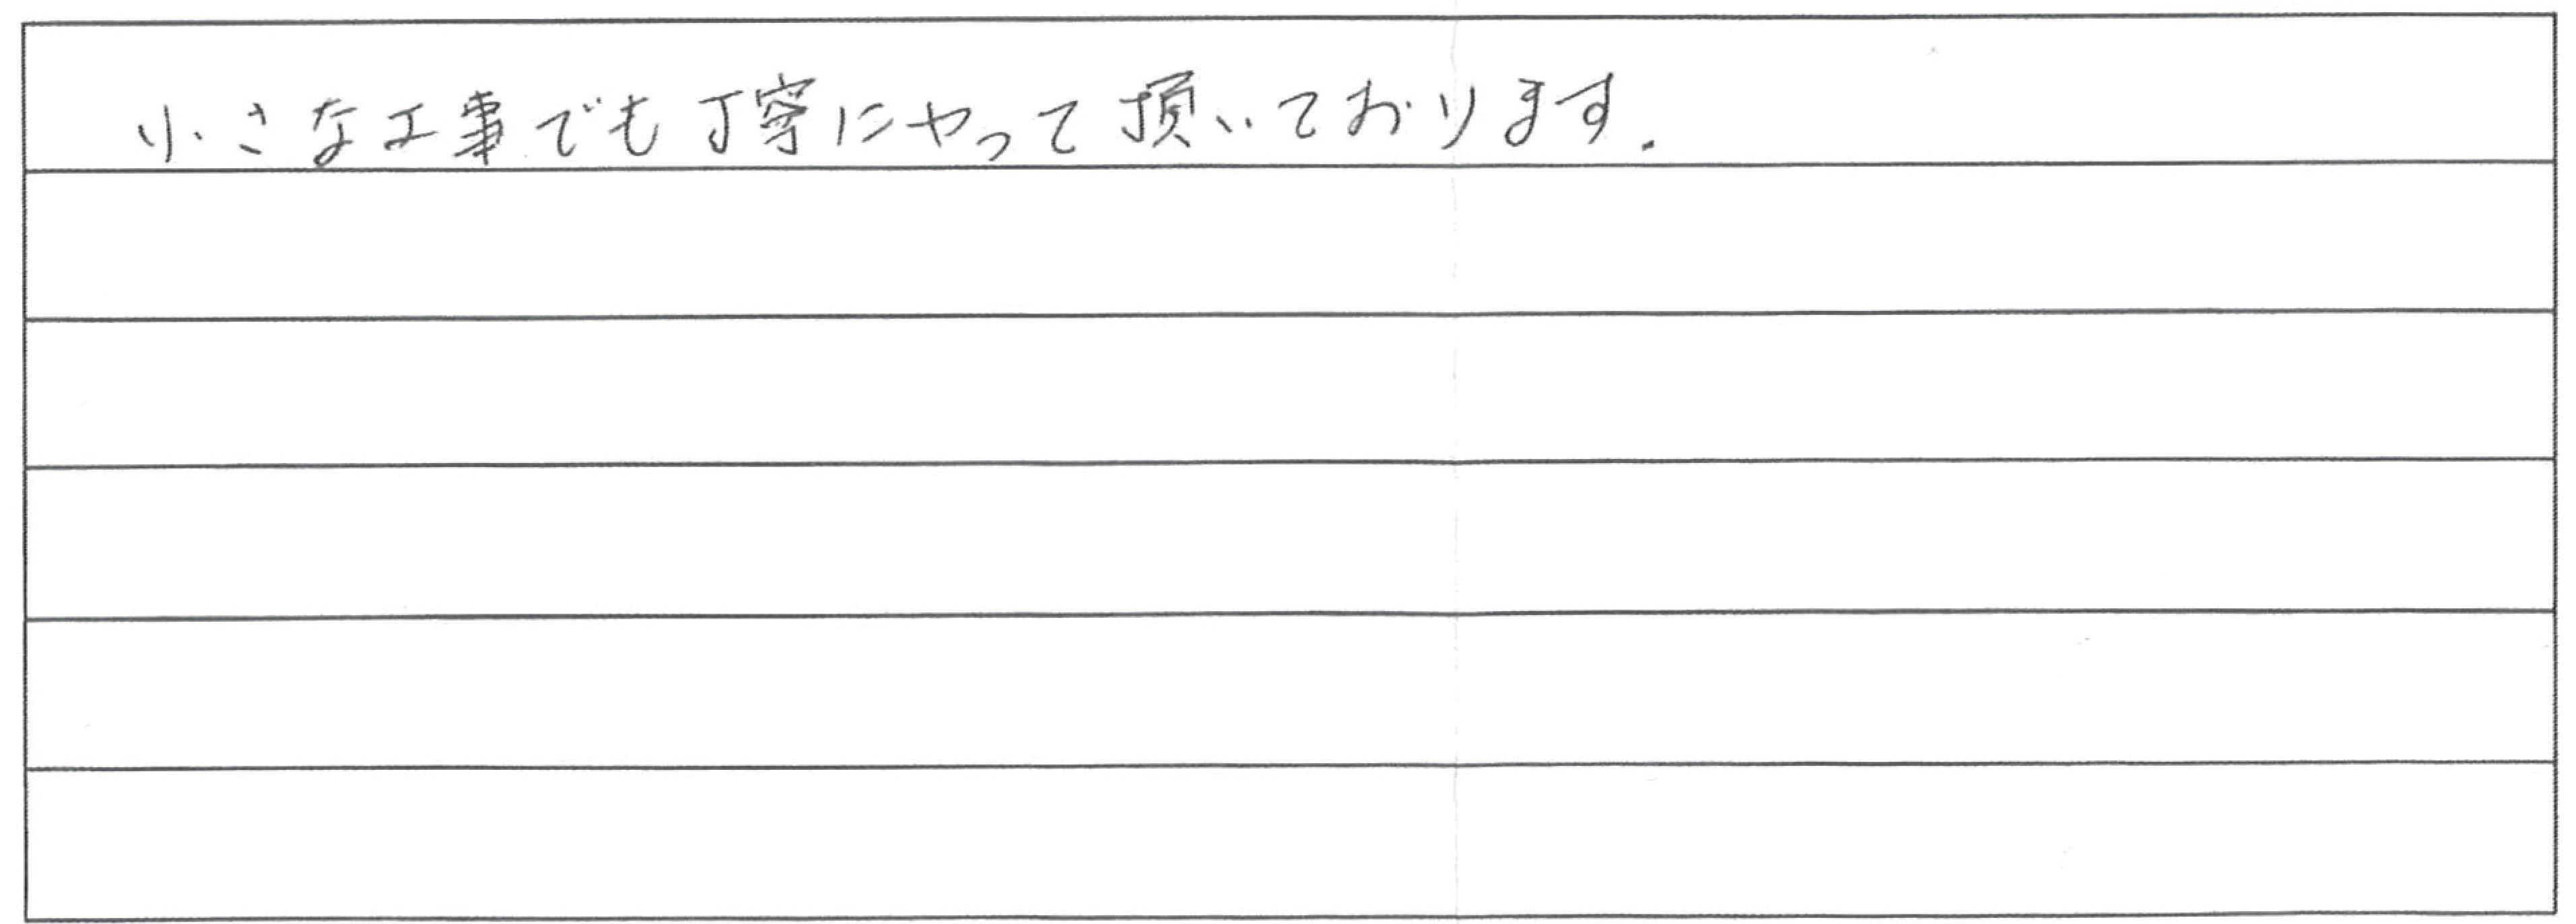 小さな工事でも丁寧にやって頂いております.